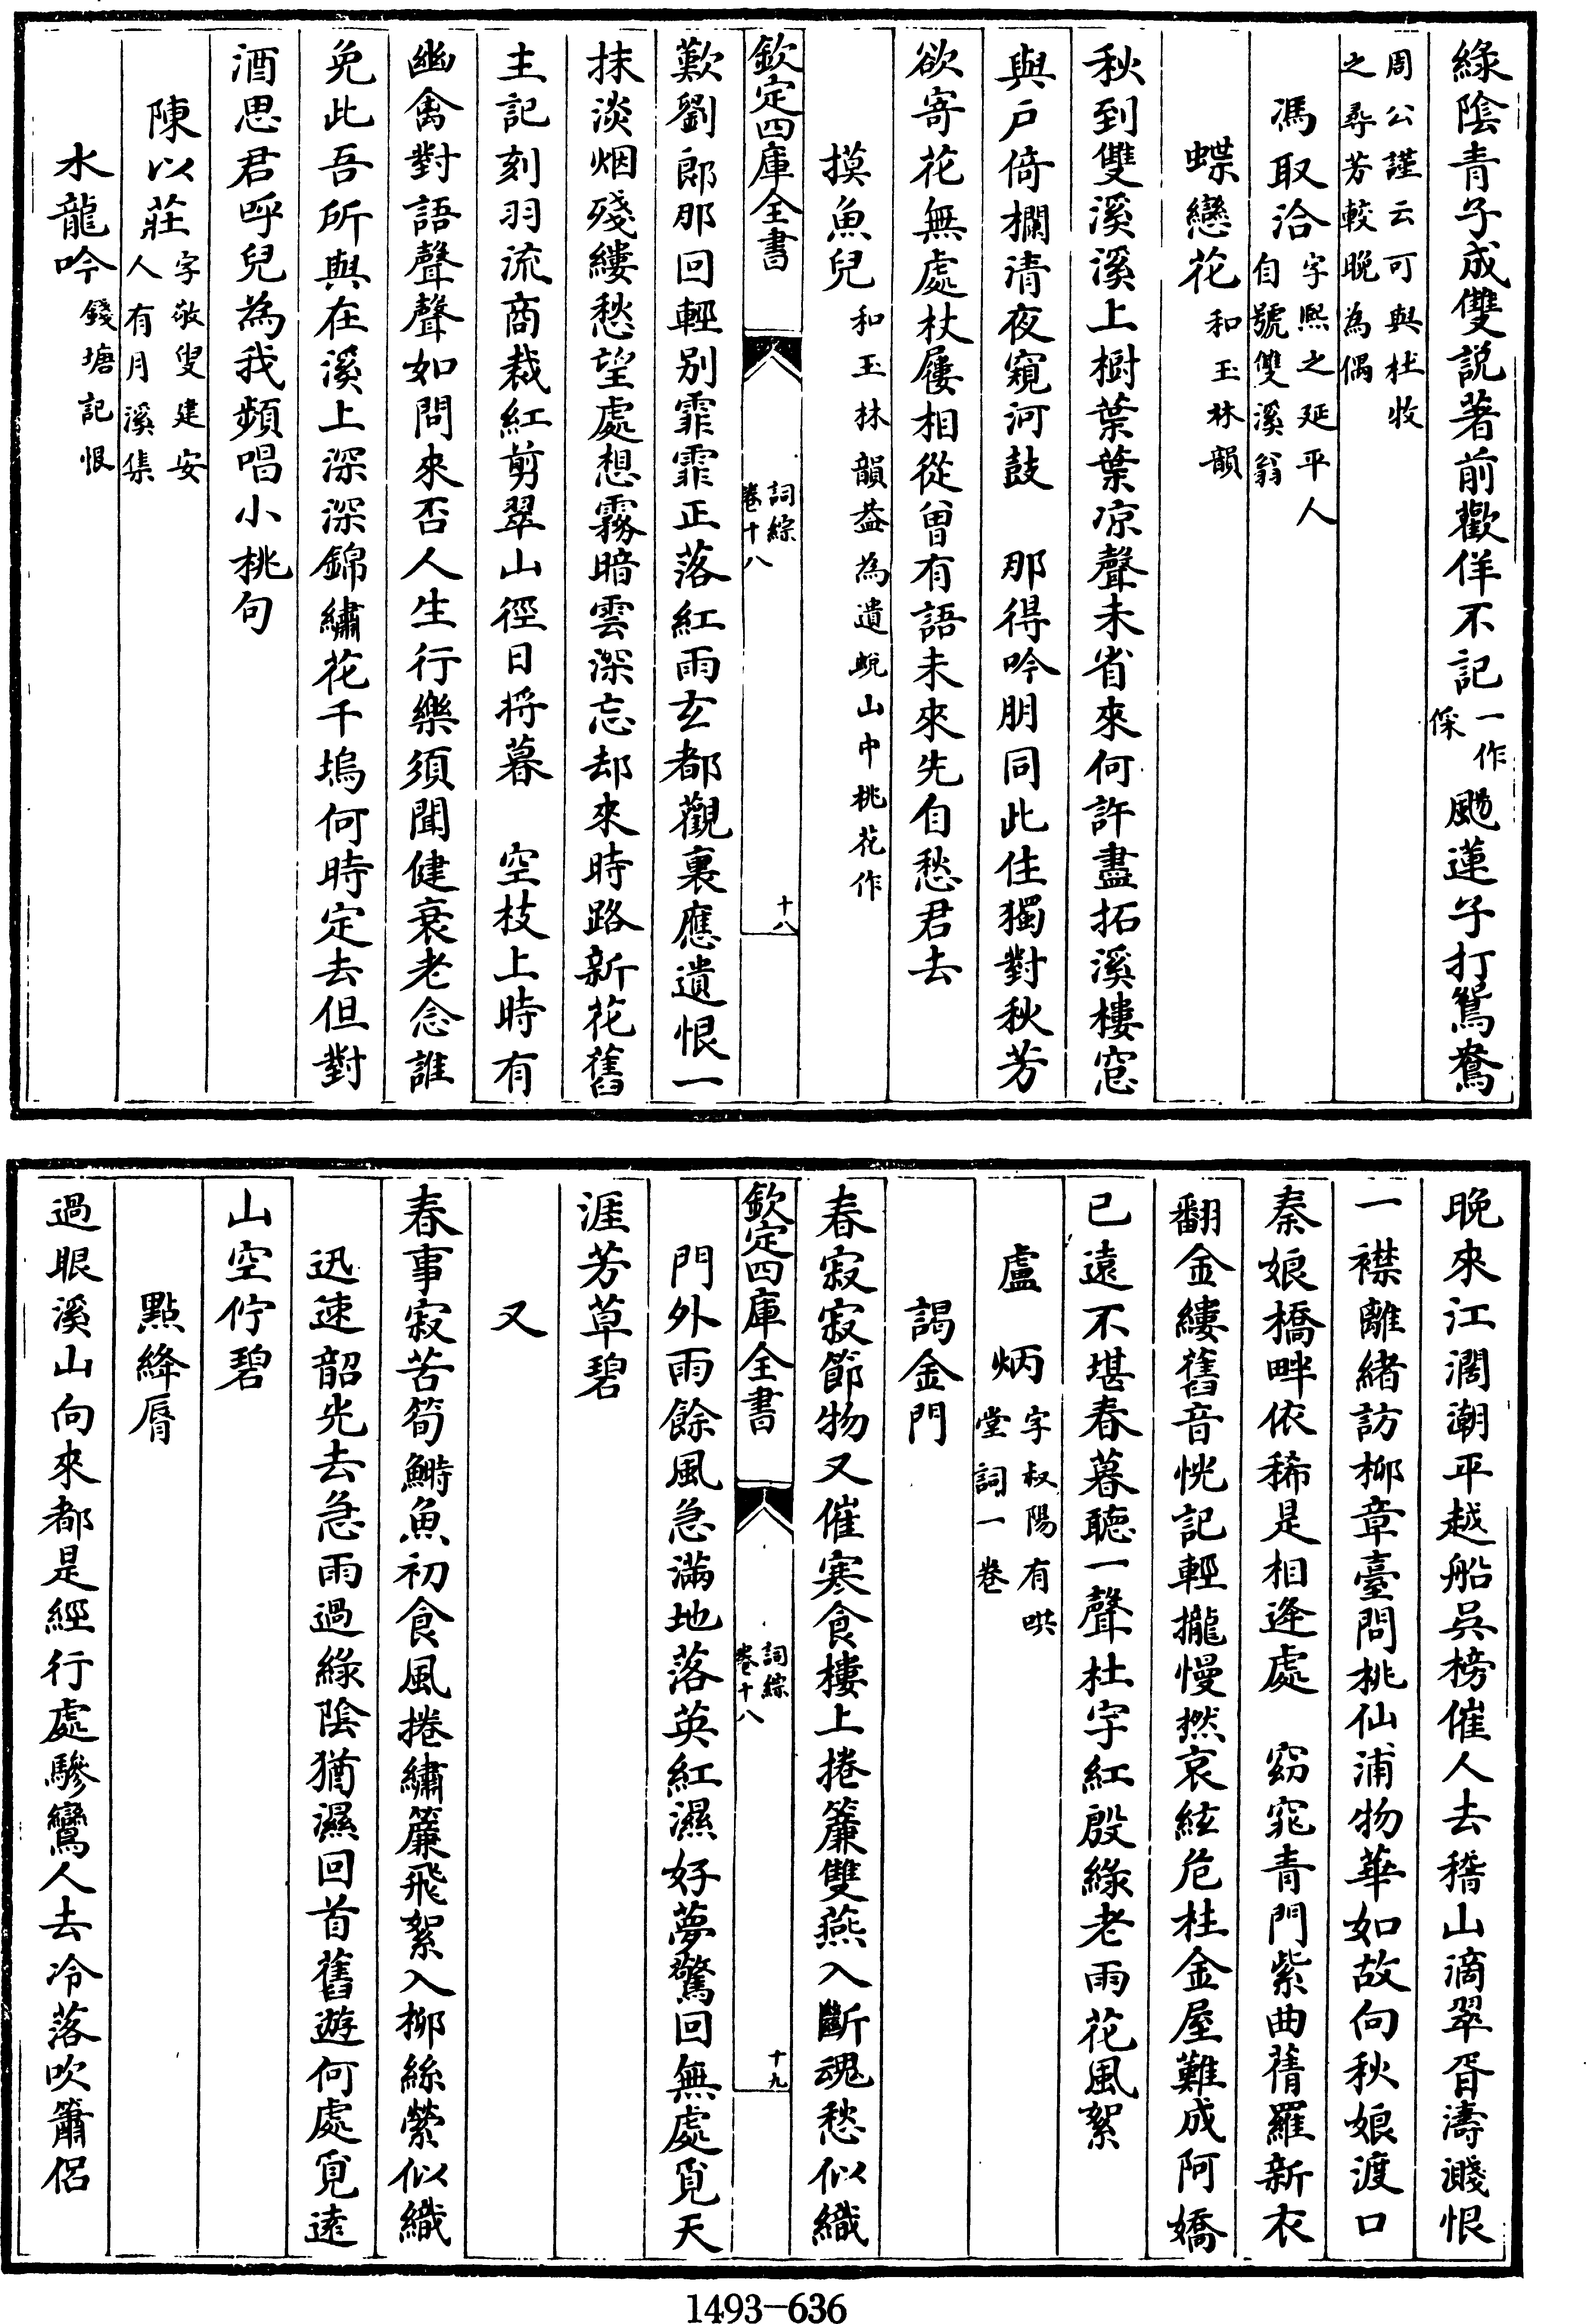 綠陰青子成雙説著前歡佯不記一作倸颺蓮子打鴛鴦
周公謹云可與杜牧之尋芳較晚為偶
馮取洽字熙之延平人自號雙溪翁
蝶戀花和玉林韻
秋到雙溪溪上樹葉葉凉聲未省來何許盡拓溪樓窓
與户倚欄清夜窺河鼓　那得吟朋同此住獨對秋芳
欲寄花無處杖屨相從曾有語未來先自愁君去
摸魚兒和玉林韻葢為遺蛻山中桃花作
欽定四庫全書
詞綜卷十八
十八
歎劉郎那回輕别霏霏正落紅雨玄都觀裏應遺恨一
抹淡烟殘縷愁望處想霧暗雲深忘却來時路新花舊
主記刻羽流商裁紅剪翠山徑日将暮　空枝上時有
幽禽對語聲聲如問來否人生行樂須聞健衰老念誰
免此吾所與在溪上深深錦繡花千塢何時定去但對
酒思君呼兒為我頻唱小桃句
陳以莊字敬叟建安人有月溪集
水龍吟錢塘記恨
晚來江濶潮平越船吳榜催人去稽山滴翠胥濤濺恨
一襟離緒訪柳章臺問桃仙浦物華如故向秋娘渡口
秦娘橋畔依稀是相逢處　窈窕青門紫曲蒨羅新衣
翻金縷舊音恍記輕攏慢撚哀絃危柱金屋難成阿嬌
已遠不堪春暮聽一聲杜宇紅殷綠老雨花風絮
盧　炳字叔陽有哄堂詞一卷
謁金門
春寂寂節物又催寒食樓上捲簾雙燕入斷魂愁似織
欽定四庫全書
詞綜卷十八
十九
門外雨餘風急滿地落英紅濕好夢驚回無處覓天
涯芳草碧
又
春事寂苦筍鰣魚初食風捲繡簾飛絮入柳絲縈似織
迅速韶光去急雨過綠陰猶濕回首舊遊何處覓遠
山空佇碧
點絳脣
過眼溪山向來都是經行處驂鸞人去冷落吹簫侣
1493–636